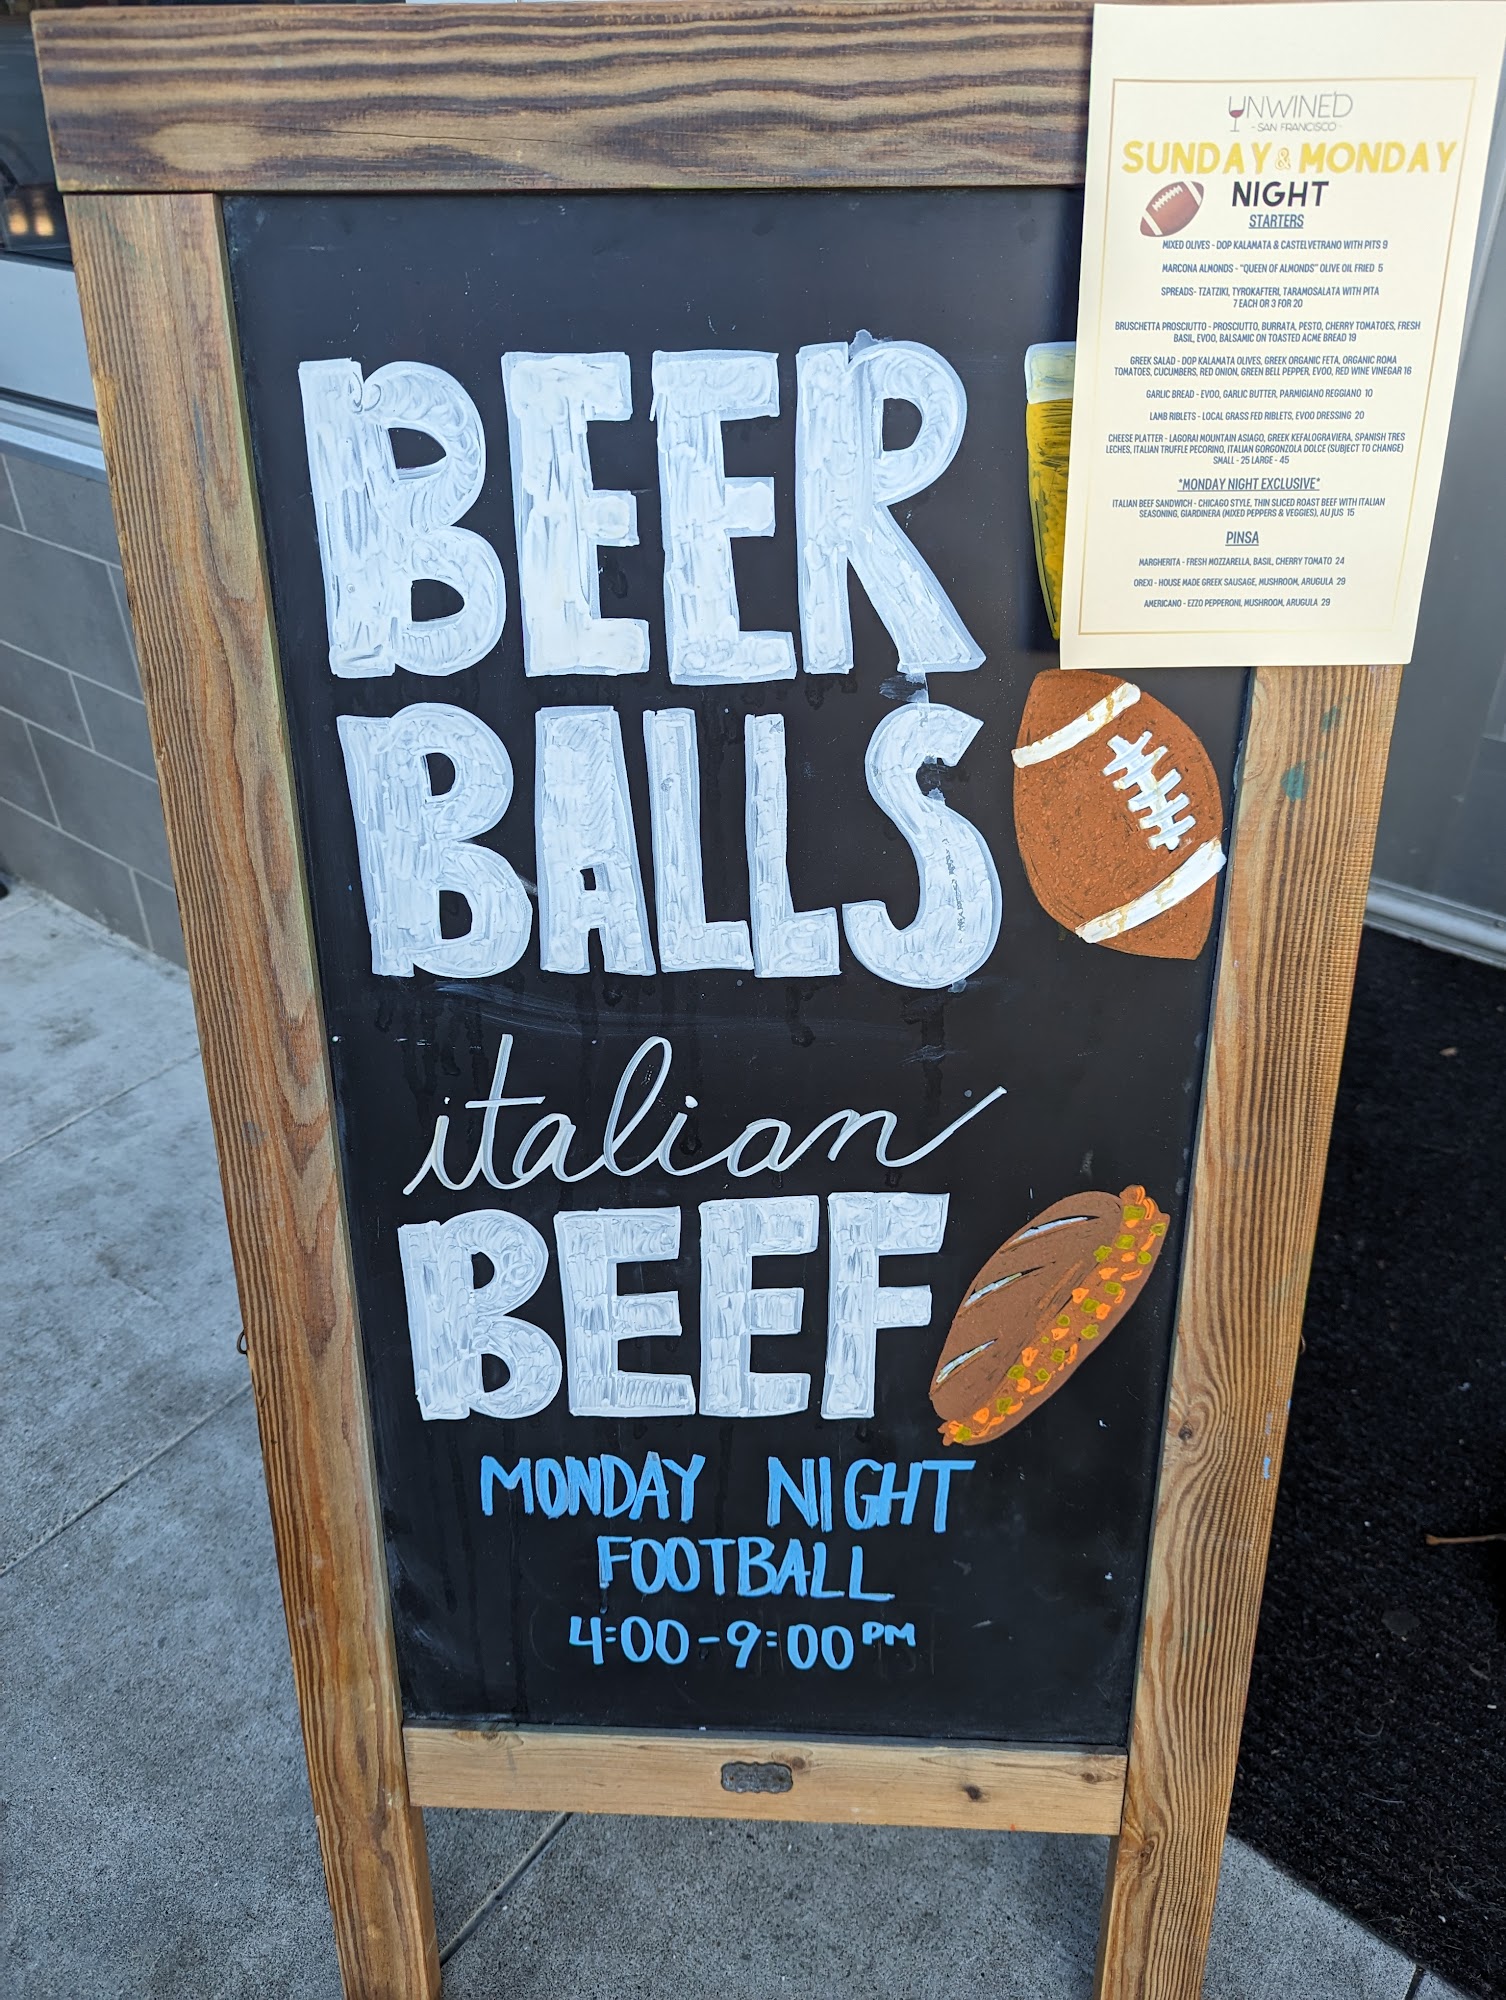 BEER
BALLS
italian
BEEF
MONDAY NIGHT
FOOTBALL
4:00-9:00PM
UNWINE'D
- SAN FRANCISCO -
SUNDAY & MONDAY
NIGHT
STARTERS
MIXED OLIVES - DOP KALAMATA & CASTELVETRANO WITH PITS 9
MARCONA ALMONDS - "QUEEN OF ALMONDS" OLIVE OIL FRIED 5
SPREADS- TZATZIKI, TYROKAFTERI, TARAMOSALATA WITH PITA
7 EACH OR 3 FOR 20
BRUSCHETTA PROSCIUTTO - PROSCIUTTO, BURRATA, PESTO, CHERRY TOMATOES, FRESH
BASIL, EVOO, BALSAMIC ON TOASTED ACME BREAD 19
GREEK SALAD - DOP KALAMATA OLIVES, GREEK ORGANIC FETA, ORGANIC ROMA
TOMATOES, CUCUMBERS, RED ONION, GREEN BELL PEPPER, EVOO, RED WINE VINEGAR 16
GARLIC BREAD - EVOO, GARLIC BUTTER, PARMIGIANO REGGIANO 10
LAMB RIBLETS - LOCAL GRASS FED RIBLETS, EVOO DRESSING 20
CHEESE PLATTER - LAGORAI MOUNTAIN ASIAGO, GREEK KEFALOGRAVIERA, SPANISH TRES
LECHES, ITALIAN TRUFFLE PECORINO, ITALIAN GORGONZOLA DOLCE (SUBJECT TO CHANGE)
SMALL - 25 LARGE - 45
*MONDAY NIGHT EXCLUSIVE*
ITALIAN BEEF SANDWICH - CHICAGO STYLE, THIN SLICED ROAST BEEF WITH ITALIAN
SEASONING, GIARDINERA (MIXED PEPPERS & VEGGIES), AU JUS 15
PINSA
MARGHERITA - FRESH MOZZARELLA, BASIL, CHERRY TOMATO 24
OREXI - HOUSE MADE GREEK SAUSAGE, MUSHROOM, ARUGULA 29
AMERICANO - EZZO PEPPERONI, MUSHROOM, ARUGULA 29